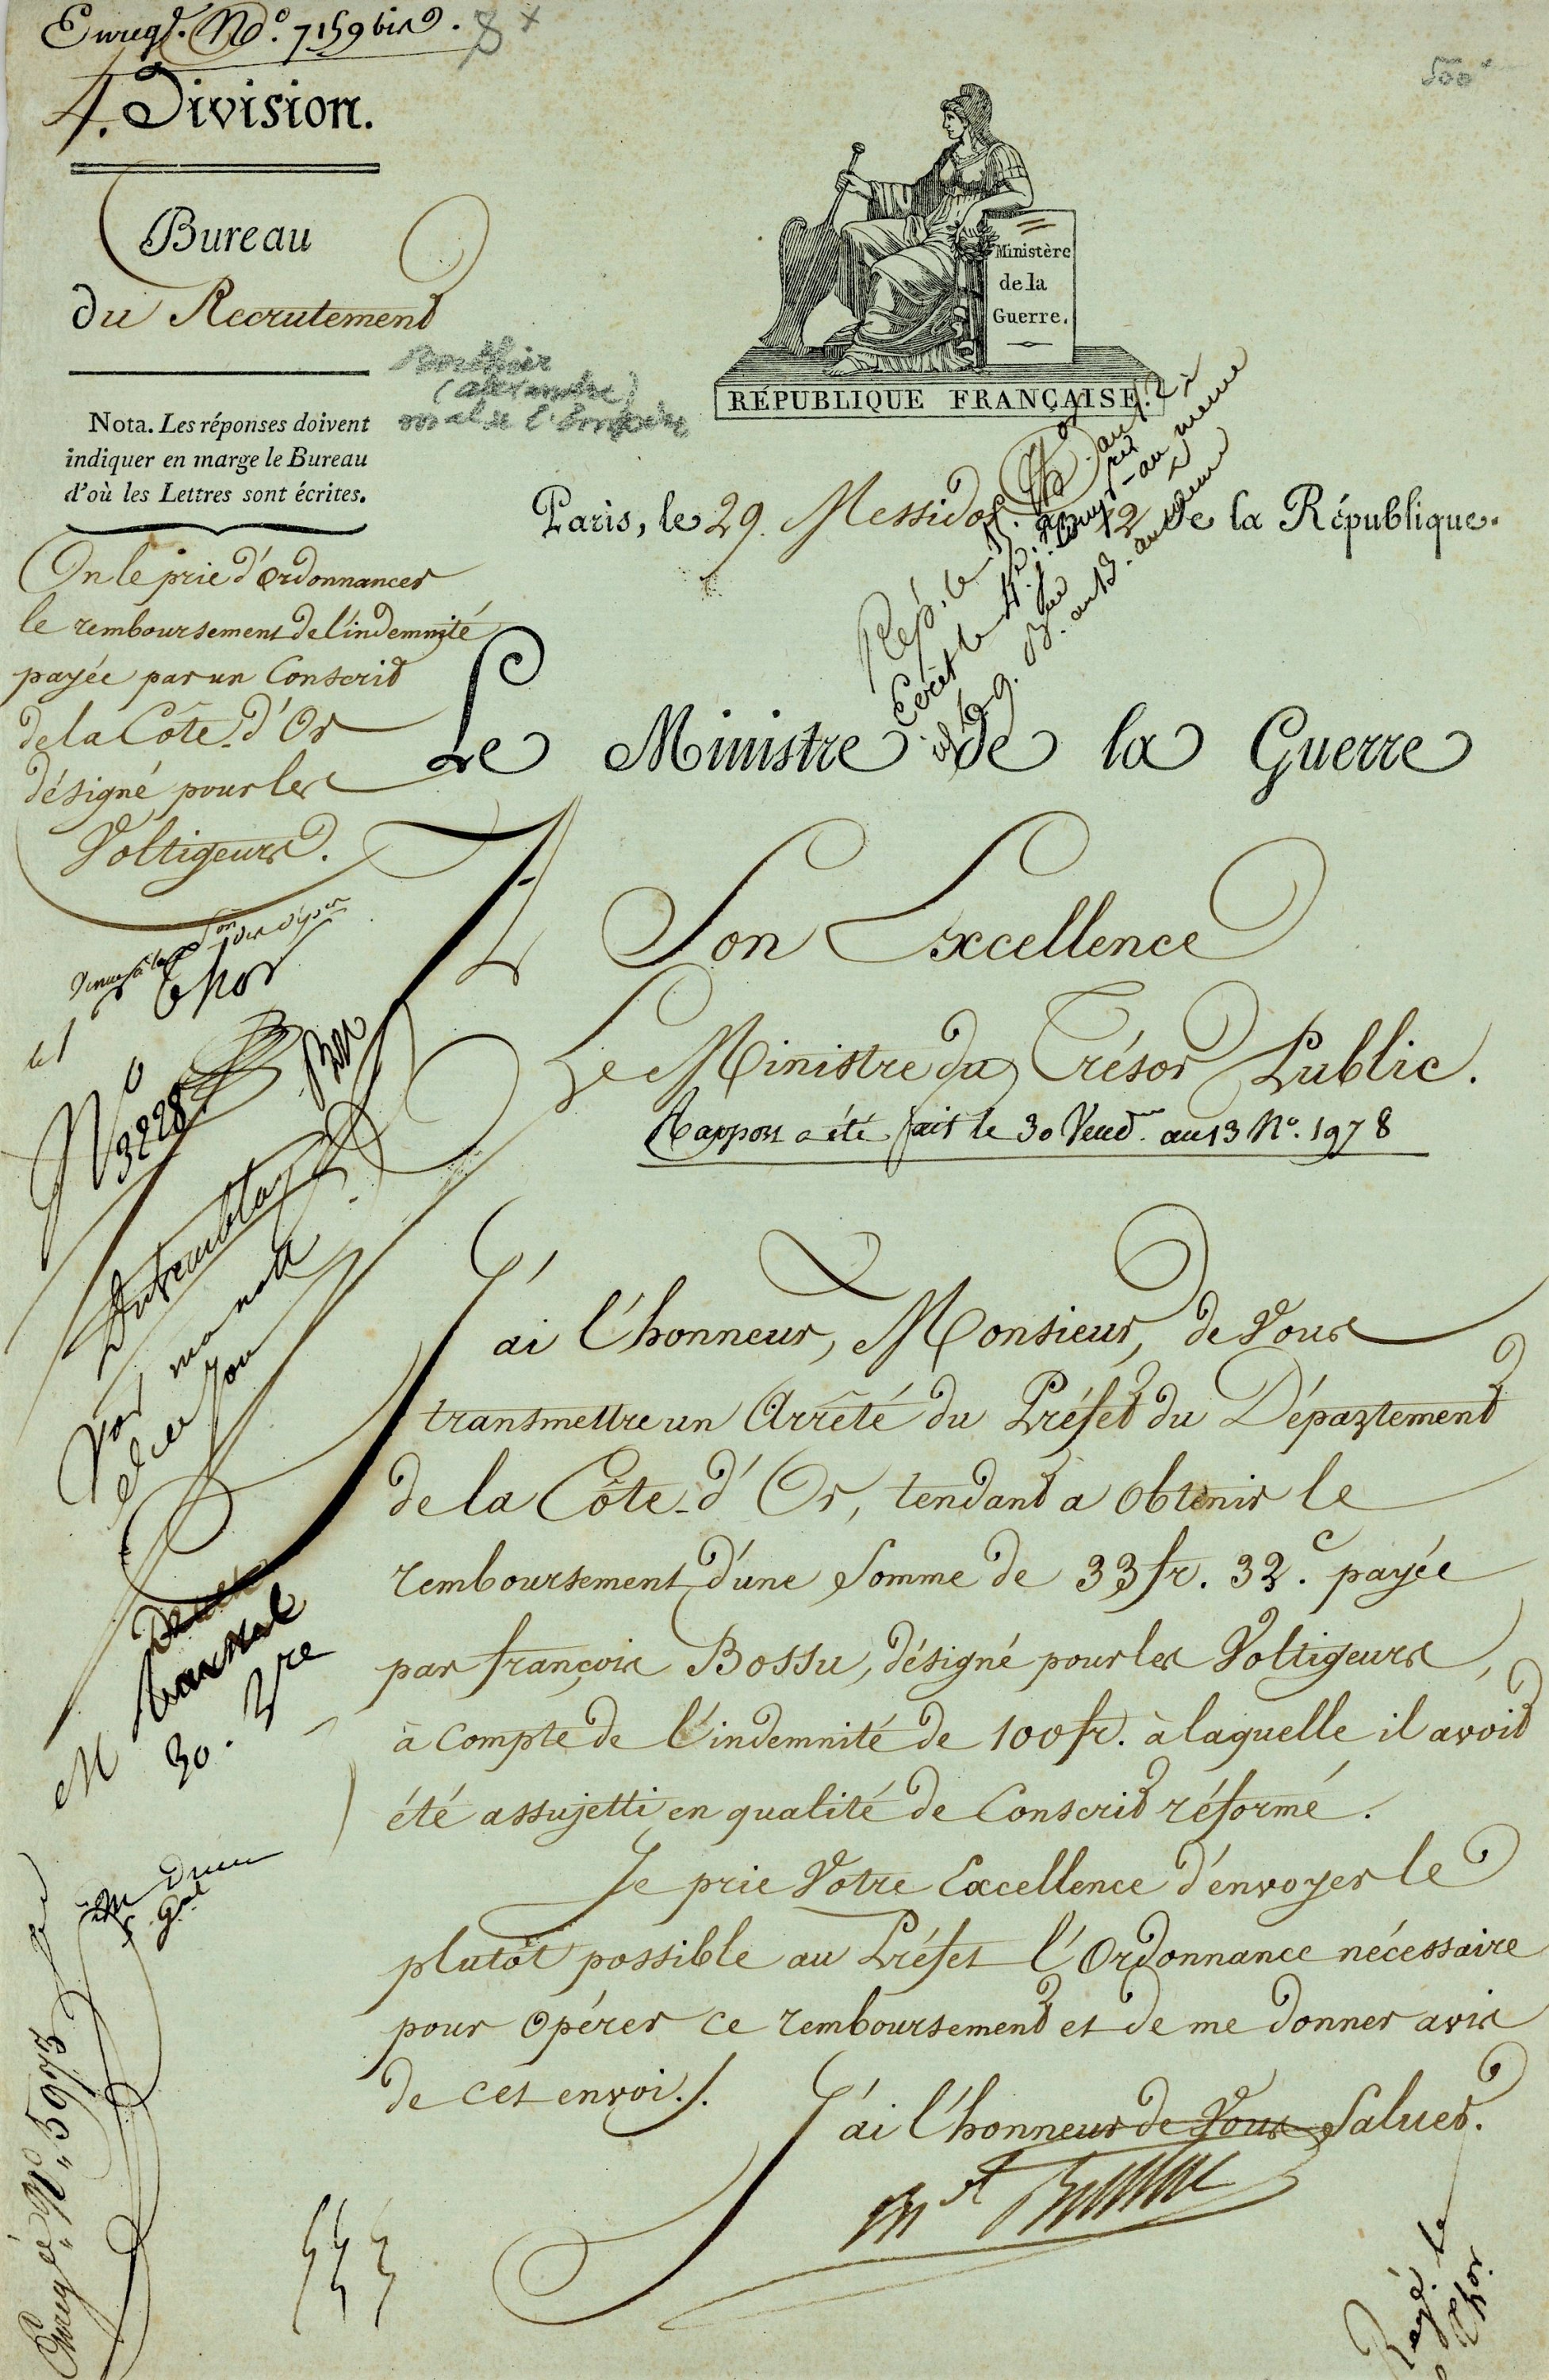 Enreg.é No. 7159 bis.
4.e Division.
Bureau
du Recrutement
Nota. Les réponses doivent
indiquer en marge le Bureau
d'où les Lettres sont écrites.
Ministère
de la
Guerre.
RÉPUBLIQUE FRANÇAISE.
Paris, le 29. Messidor an 12 de la République.
On le prie d'ordonnancer
le remboursement de l'indemnité
payée par un Conscrit
de la Côte-d'Or
désigné pour les
Voltigeurs.
Le Ministre de la Guerre
A Son Excellence
Le Ministre du Trésor Public.
Rapport a été fait le 30 Vend.re an 13 No. 1978
J'ai l'honneur, Monsieur, de Vous
transmettre un Arrêté du Préfet du Département
de la Côte-d'Or, tendant a obtenir le
remboursement d'une Somme de 33 fr. 32.c payée
par françois Bossu, désigné pour les Voltigeurs,
à compte de l'indemnité de 100 fr. à laquelle il avoit
été assujetti en qualité de Conscrit réformé.
Je prie Votre Excellence d'envoyer le
plutôt possible au Préfet l'Ordonnance nécessaire
pour opérer ce remboursement et de me donner avis
de cet envoi./.
J'ai l'honneur de Vous Saluer.
No 3228
Voir ma note
30. Bre
Enreg.é No. 5975